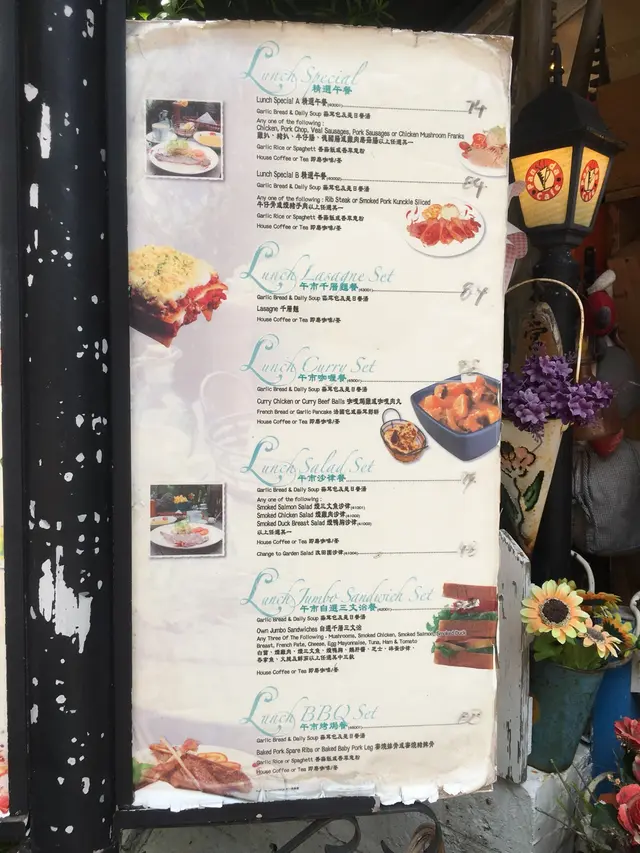 Lunch Special
精選午餐
Lunch Special A 精選午餐 74
Garlic Bread & Daily Soup 蒜茸包及是日餐湯
Any one of the following :
Chicken, Pork Chop, Veal Sausages, Pork Sausages or Chicken Mushroom Franks
Garlic Rice or Spaghett 香蒜飯或香草意粉
House Coffee or Tea 即磨咖啡/茶
Lunch Special B 精選午餐
Garlic Bread & Daily Soup 蒜茸包及是日餐湯
Any one of the following : Rib Steak or Smoked Pork Kunckle Sliced
牛仔骨或燻豬手肉以上任選其一
Garlic Rice or Spaghett 香蒜飯或香草意粉
House Coffee or Tea 即磨咖啡/茶
Lunch Lasagne Set
午市千層麵餐 84
Garlic Bread & Daily Soup 蒜茸包及是日餐湯
Lasagne 千層麵
House Coffee or Tea 即磨咖啡/茶
Lunch Curry Set
午市咖喱餐
Garlic Bread & Daily Soup 蒜茸包及是日餐湯
Curry Chicken or Curry Beef Balls 咖喱雞腿或咖喱肉丸
French Bread or Garlic Pancake
House Coffee or Tea 即磨咖啡/茶
Lunch Salad Set
午市沙律餐
Garlic Bread & Daily Soup 蒜茸包及是日餐湯
Any one of the following :
Smoked Salmon Salad 燻三文魚沙律
Smoked Chicken Salad 燻雞肉沙律
Smoked Duck Breast Salad 燻鴨胸沙律
以上任選其一
House Coffee or Tea 即磨咖啡/茶
Change to Garden Salad 改田園沙律
Lunch Jumbo Sandwich Set
午市自選三文治餐
Garlic Bread & Daily Soup 蒜茸包及是日餐湯
Own Jumbo Sandwiches 自選千層三文治
Any Three Of The Following - Mushrooms, Smoked Chicken, Smoked Salmon, Smoked Duck
Breast, French Pate, Cheese, Egg Mayonnaise, Tuna, Ham & Tomato
House Coffee or Tea 即磨咖啡/茶
Lunch BBQ Set
午市烤焗餐
Garlic Bread & Daily Soup 蒜茸包及是日餐湯
Baked Pork Spare Ribs or Baked Baby Pork Leg
Garlic Rice or Spaghett 香蒜飯或香草意粉
House Coffee or Tea 即磨咖啡/茶